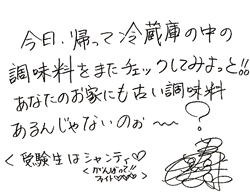 今日、帰って冷蔵庫の中の
調味料をまたチェックしてみよっと!!
あなたのお家にも古い調味料
あるんじゃないのぉ〜〜?
<受験生はシャンティ♡
<がんばって!!
ファイト♡♡♡>